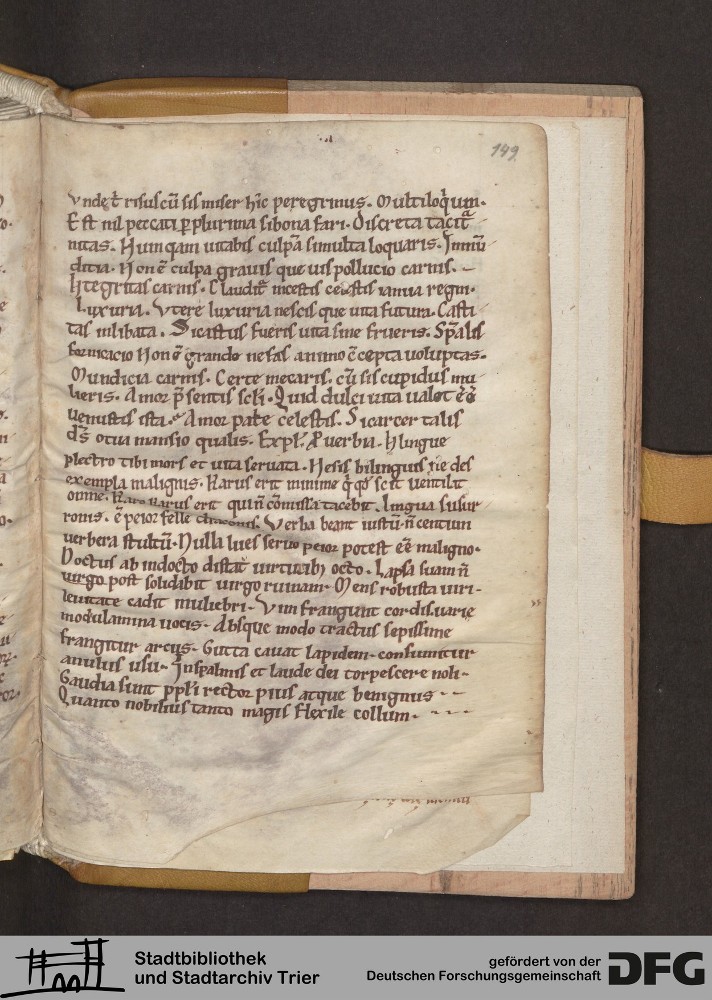 149
Vnde t̄ risus cū sis miser hic peregrinus. Multiloq̇um.
Est nil peccati p̄ plurima si bona fari. Discreta tacit
nitas. Numqam uitabis culpā si multa loquaris. Inmū
ditia. Non ē culpa grauis que uis pollucio carnis.
Integritas carnis. Claudit̄ incestis celestis ianua regni.
Luxuria. Vtere luxuria nescis que uita futura. Casti
tas inlibata. Si castus fueris uita sine frueris. Sp̄alis
fornicacio Non ē grande nefas animo ē cepta uoluptas.
Mundicia carnis. Certe mecaris. cū sis cupidus mu
lieris. Amor p̄sentis scl̄i. Quid dulci uita ualet
uenustis ista. Amor patrie celestis. Si carcer talis
d̄s otia mansio qualis. Expl̄. P̄uerbia. In lingue
plectro tibi mors et uita seruata. Nescis bilinguis ne des
exempla malignis. Rarus erit minime q̇ q̇d scit uentilit
omne. Rarus erit qui n̄ cōmissa tacebit. Lingua susur
ronis. ē peior felle draconis. Verba beant iustū. n̄ centum
uerbera stultū. Nulla lues seruo peior potest eē maligno.
Doctus ab indocto distat uirtutib; octo. Lapsa suam n̄
uirgo post solidabit uirgo ruinam. Mens robusta uiri.
leuitate cadit muliebri. Vim frangunt cordis uarie
modulamina uocis. Absque modo tractus sepissime
frangitur arcus. Gutta cauat lapidem. consumitur
anulus usu. In psalmis et laude dei torpescere noli.
Gaudia sunt pp̄li rector pius atque benignus
Quanto nobilius tanto magis flexile collum.
Stadtbibliothek
und Stadtarchiv Trier
gefördert von der
Deutschen Forschungsgemeinschaft
DFG